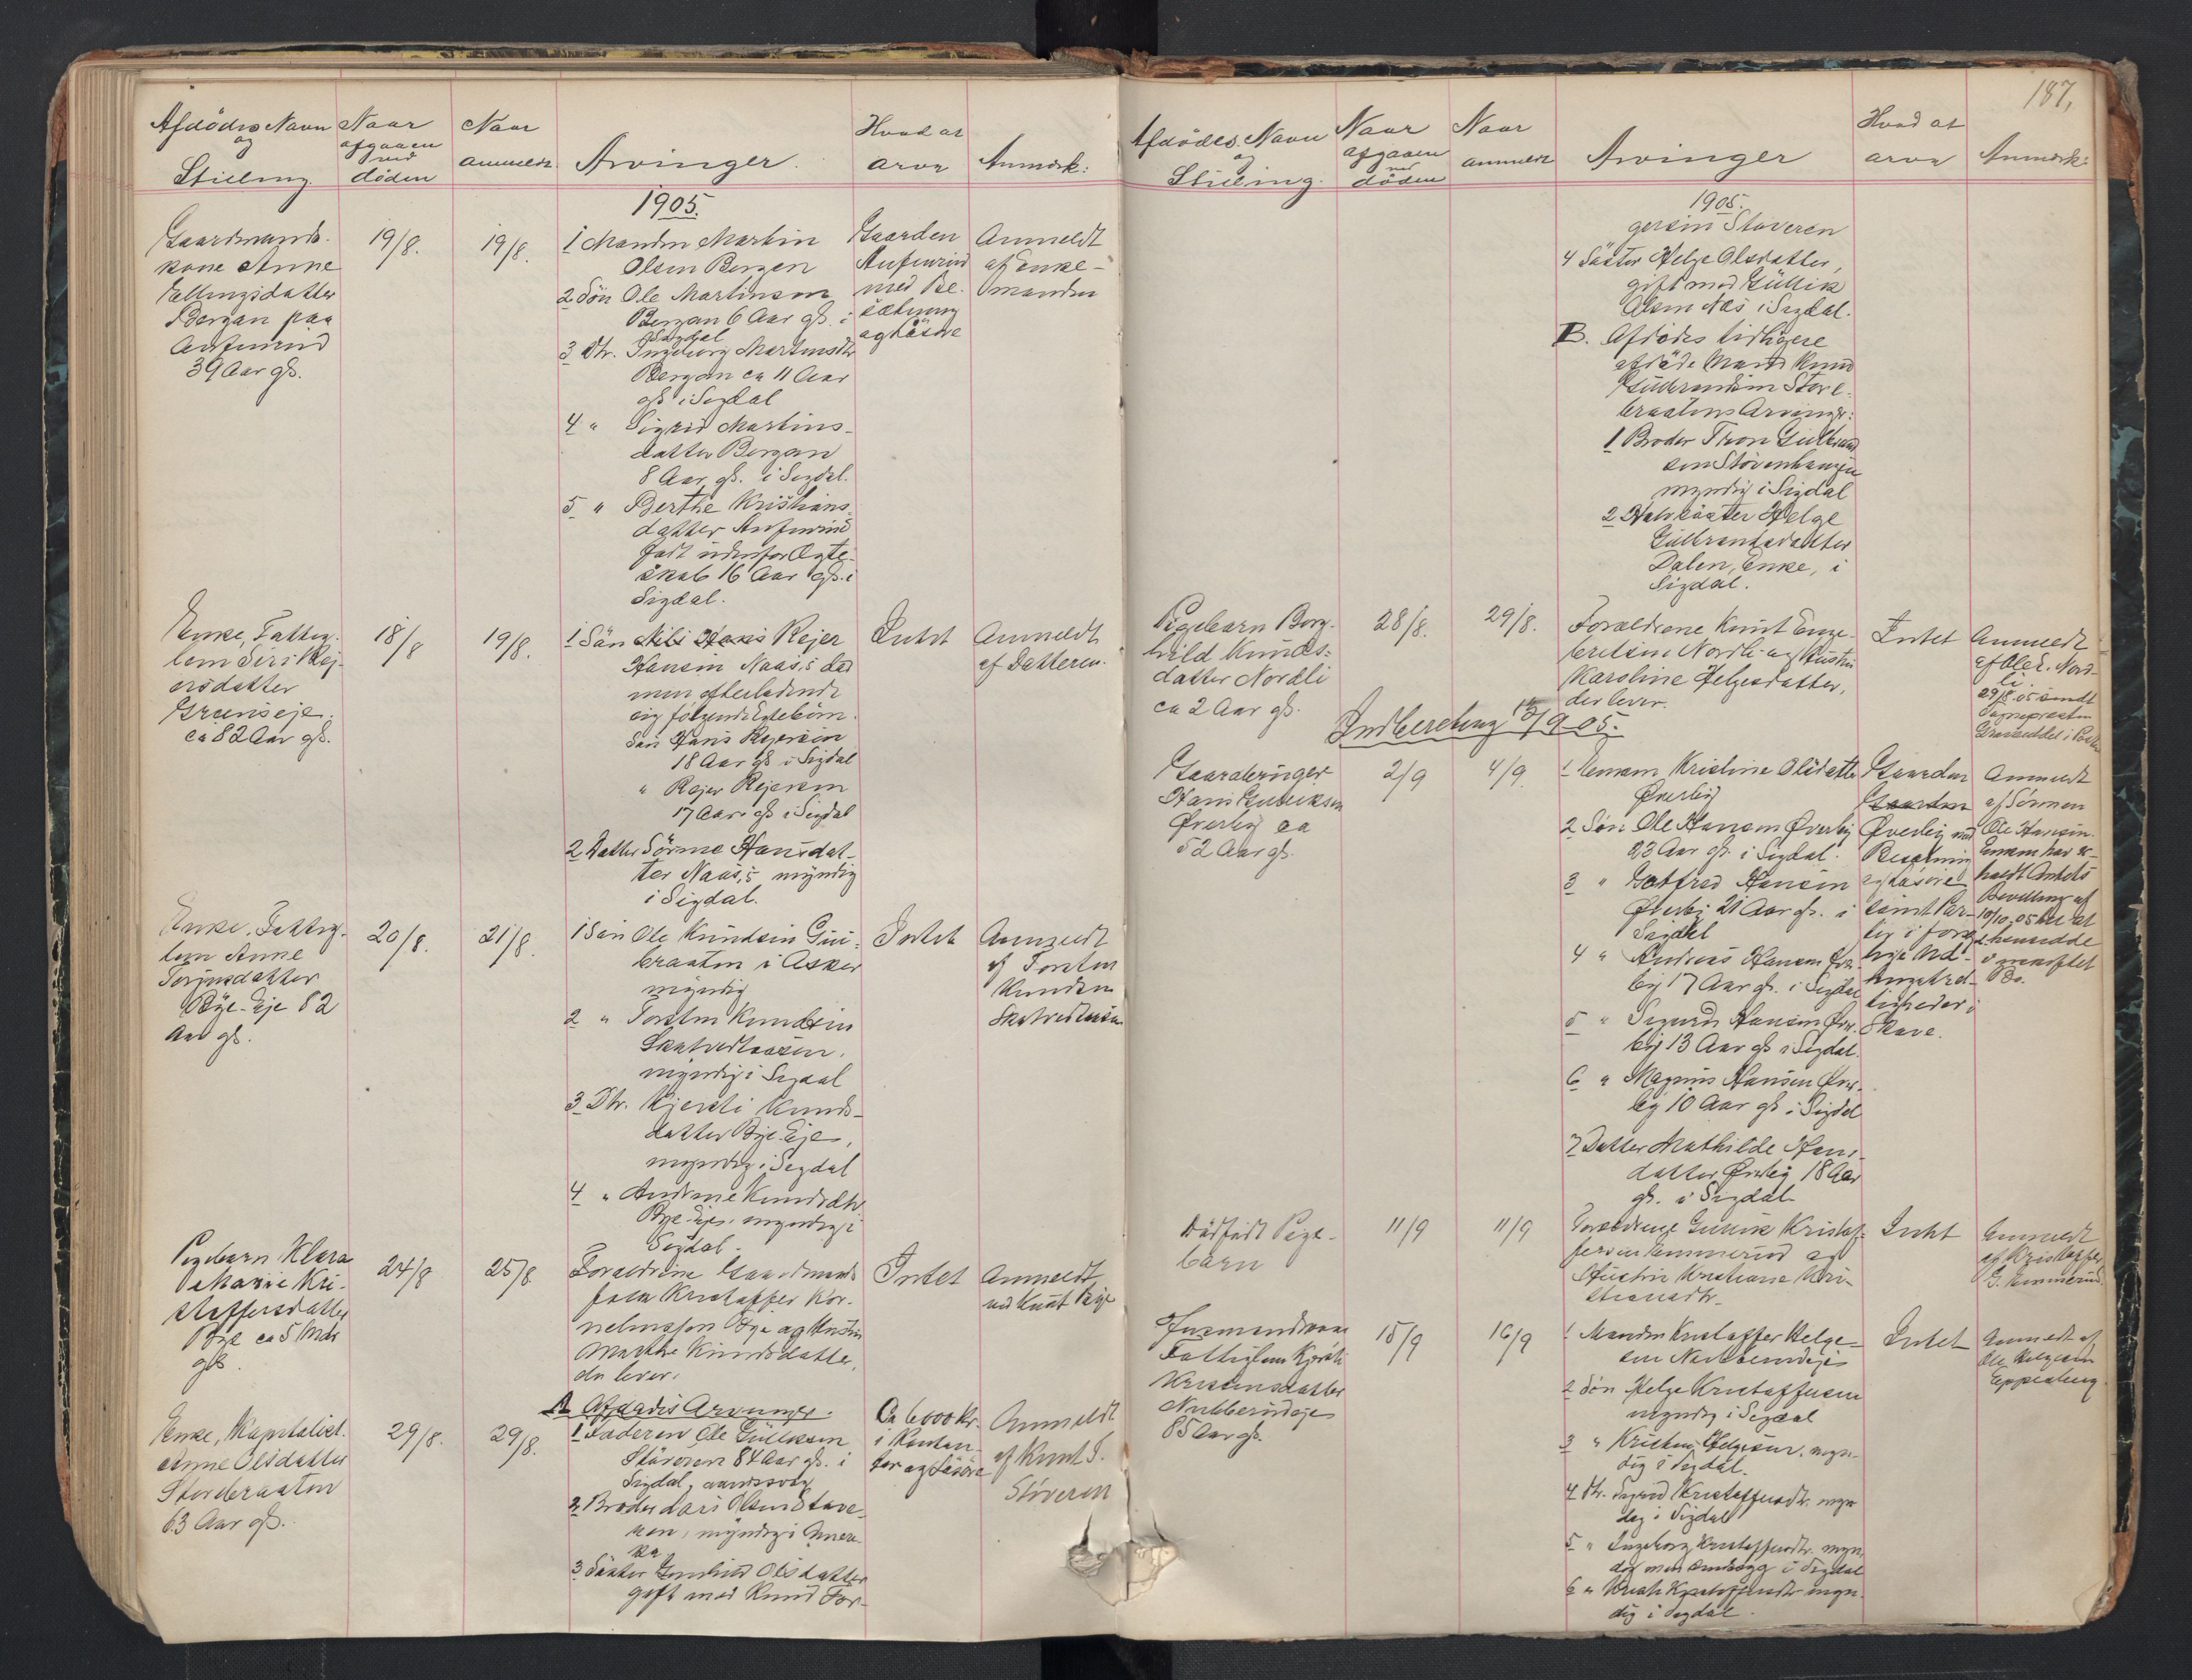 Afdödes Navn
og
Stilling.
Naar
afgaaen
ved
döden
Naar
anmeldt.
Arvinger.
Hvad at
arve
Anmærk:
1905.
Gaardmands-
kone Anne
Ellingsdatter
Bergan paa
39 Aar gl.
19/8.
19/8.
1 Manden Martin
Olsen Bergan
2 Sön Ole Martinsen
Bergan 6 Aar gl. i
Sigdal
3 Dtr. Ingeborg Martinsdtr
Bergan ca 11 Aar
gl. i Sigdal
4 " Sigrid Martins-
datter Bergan
8 Aar gl. i Sigdal.
5 " Berthe Kristians-
datter
födt udenfor Ægte-
skab 16 Aar gl. i
Sigdal.
Gaarden
med Be-
sætning
og Løsøre
Anmeldt
af Enke-
manden
Enke, Fattig-
lem Siri Rej-
ersdatter
Grønseje.
ca 82 Aar gl.
18/8
19/8.
1 Sön Rejer
Hansen Naas, i död
men efterladende
sig følgende Ægtebörn.
Sön Hans Rejersen
18 Aar gl. i Sigdal
" Rejer Rejersen
17 Aar gl. i Sigdal
2 Datter Sörine Hansdat-
ter Naas, myndig
i Sigdal.
Intet
Anmeldt
af Datteren.
Enke, Fattig-
lem Anne
Torjusdatter
Bye-Eje 82
Aar gl.
20/8.
21/8.
1 Sön Ole Knudsen Gul-
braaten i Asker
myndig
2 " Torsten Knudsen
Skatvedtaasen,
myndig i Sigdal
3 Dtr. Kjersti Knuds-
datter Bye-Eje,
myndig i Sigdal
4 " Andrine Knudsdtr
Bye-Eje, myndig i
Sigdal.
Intet
Anmeldt
af Torsten
Knudsen
Skatvedtaasen
Pigebarn Klara
Marie Kri-
stoffersdatter
Bye ca 5 Mdr
gl.
24/8
25/8
Forældrene Gaardmands-
folk Kristoffer Kor-
neliussen Bye og Hustru
Marthe Knudsdatter,
der lever.
Intet
Anmeldt
ved Knut Bye
Enke, Kapitalist.
Anne Olsdatter
Storebraaten
63 Aar gl.
29/8.
29/8.
A. Afdödes Arvinger.
1 Faderen Ole Gulliksen
Støveren 84 Aar gl. i
Sigdal, aandssvag
2 Broder Lars Olsen Støve-
ren, myndig i Ameri-
ka
3 Søster Gunhild Olsdatter
gift med Knud Tor-
Ca 6000 Kr.
i Kontan-
ter og Løsøre
Anmeldt
af Knut T.
Støveren
187,
Afdödes Navn
og
Stilling.
Naar
afgaaen
ved
döden
Naar
anmeldt
Arvinger
Hvad at
arve
Anmærk:
1905.
gersen Støveren
4 Søster Helge Olsdatter,
gift med Gullik
Olsen Næs i Sigdal.
B. Afdödes tidligere
afdöde Mand Knud
Gulbrandsen Store-
braatens Arvinger:
1 Broder Tron Gulbrand
sen Støvenhaugen
myndig i Sigdal
2 Halvsøster Helge
Gulbrandsdatter
Dalen, Enke, i
Sigdal.
Pigebarn Borg-
hild Knuds-
datter Nordli
ca 2 Aar gl.
28/8.
29/8.
Forældrene Knut Enge-
bretsen Nordli og Hustru
Karoline Helgesdatter,
der lever.
Intet
Anmeldt
af Ole E. Nord-
li.
29/8.05 sendt
Sognepresten
Indberetning /9 05.
Gaardbruger
Hans Gulliksen
Øverby ca
52 Aar gl.
2/9
4/9.
1 Enken, Kristine Olsdatter
Øverby
2 Sön Ole Hansen Øverby
23 Aar gl. i Sigdal.
3 " Gotfred Hansen
Øverby 21 Aar gl. i
Sigdal
4 " Andreas Hansen Øver-
by 17 Aar gl. i Sigdal
5 " Sigurd Hansen Øver-
by 13 Aar gl. i Sigdal.
6 " Magnus Hansen Øver-
by 10 Aar gl. i Sigdal
7 Datter Mathilde Hans-
datter Øverby 18 Aar
gl. i Sigdal
Gaarden
Gaarden
Øverby med
Besætning
og Løsøre
samt Par-
ter i forsk
Skove.
Anmeldt
af Sönnen
Ole Hansen.
Enken har er-
holdt Amtets
Bevilling af
10/10.05 til at
hensidde
i uskiftet
Bo.
Dödfödt Pige-
barn
11/9
11/9
Forældrene Gullik Kristof-
fersen Kimmerud og
Hustru Kristiane Kri-
stiansdtr.
Intet
Anmeldt
af Kristoffer
G. Kimmerud.
Fattiglem Kjersti
Kristensdatter
Nubberudeje
85 Aar gl.
15/9
16/9
1 Manden Kristoffer Helge-
sen Nubberudeje
2 Sön Helge Kristoffersen
myndig i Sigdal
3 " Kristen Helgesen, myn-
dig i Sigdal.
4 Dtr. Sigrid Kristoffersdtr. myn
dig i Sigdal
5 " Ingeborg Kristoffersdtr. myn-
dig men sindssyg i Sigdal
6 " Kristoffersdtr. myn-
dig i Sigdal.
Intet
Anmeldt af
Ole Helgesen